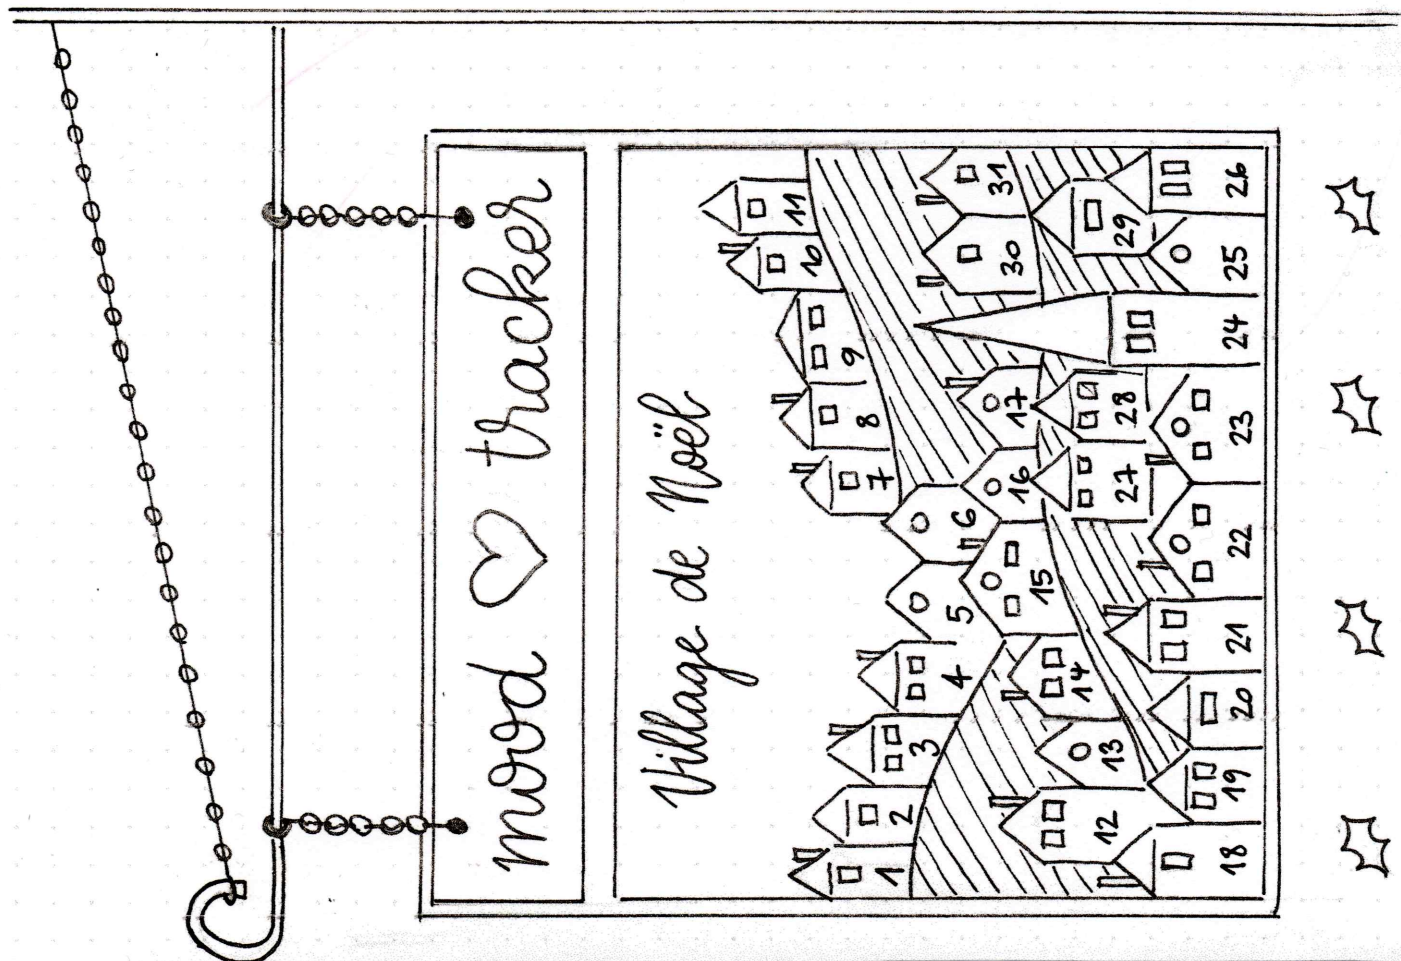 mood ♡ tracker
Village de Noël
1 2 3 4 5 6 7 8 9 10 11
12 13 14 15 16 17 30 31
27 28 29
18 19 20 21 22 23 24 25 26